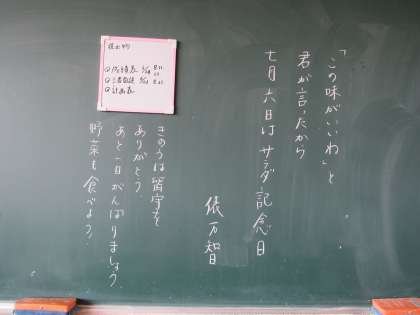 「この味がいいね」と
君が言ったから
七月六日はサラダ記念日
俵万智
きのうは留守を
ありがとう。
あと一日がんばりましょう。
野菜も食べよう。
提出物
計画表